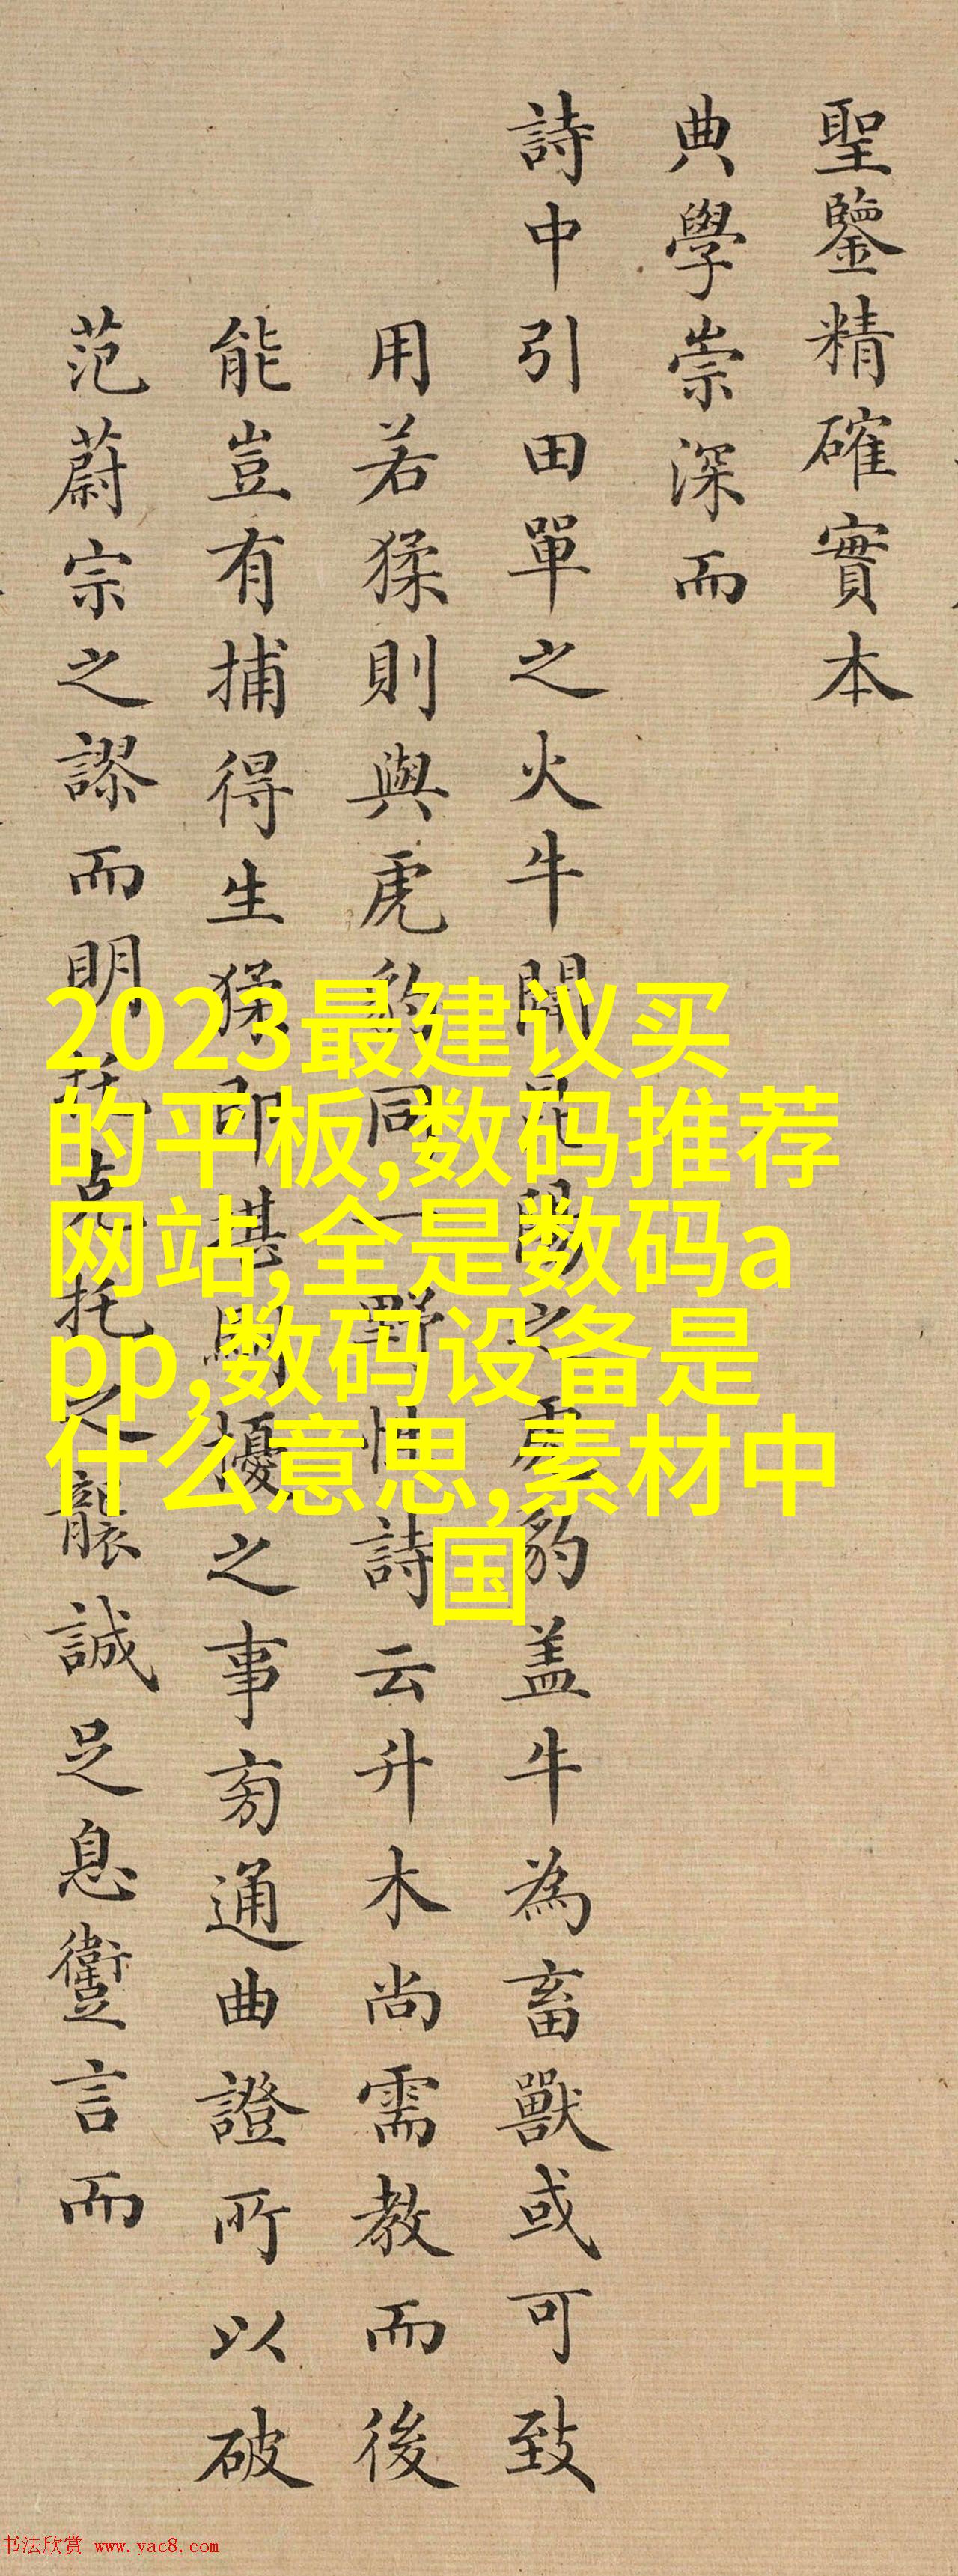 聖鑒精確實本
典學崇深而
詩中引田單之火牛聞昆陽之虎豹盖牛為畜獸或可致
用若猱則與虎豹同一野性詩云升木尚需教而後
能豈有捕得生猱即堪擾之事旁通曲證所以破
范蔚宗之謬而明托克托之襲誠足息躗言而
2023最建议买
的平板,数码推荐
网站,全是数码a
pp,数码设备是
什么意思,素材中
国
书法欣赏 www.yac8.com